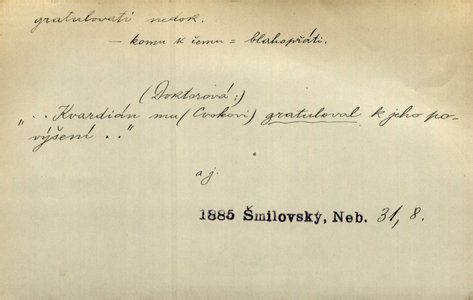 gratulovati nedok.
— komu k čemu = blahopřáti.
(Doktorová:)
„.. Kvardián mu (Cvokovi) gratuloval k jeho po-
výšení .."
a j.
1885 Šmilovský, Neb. 31, 8.